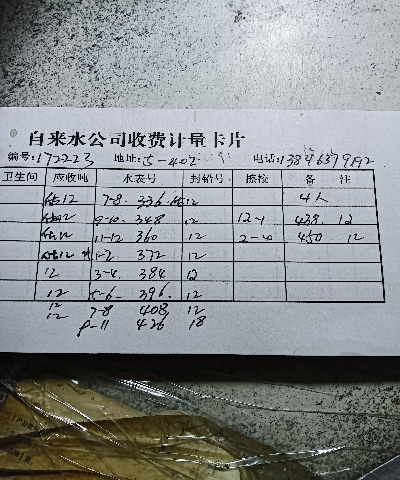 自来水公司收费计量卡片
编号:172223 地址:5-402 电话:13846379192
卫生间 应收吨 水表号 封铅号 接栓 备 注
12 7-8 336 12 4人
12 9-10 348 12 12-1 438 12
12 11-12 360 12 2-4 450 12
12 1-2 372 12
12 3-4 384 12
12 5-6 396 12
12 7-8 408 12
12 9-11 426 18